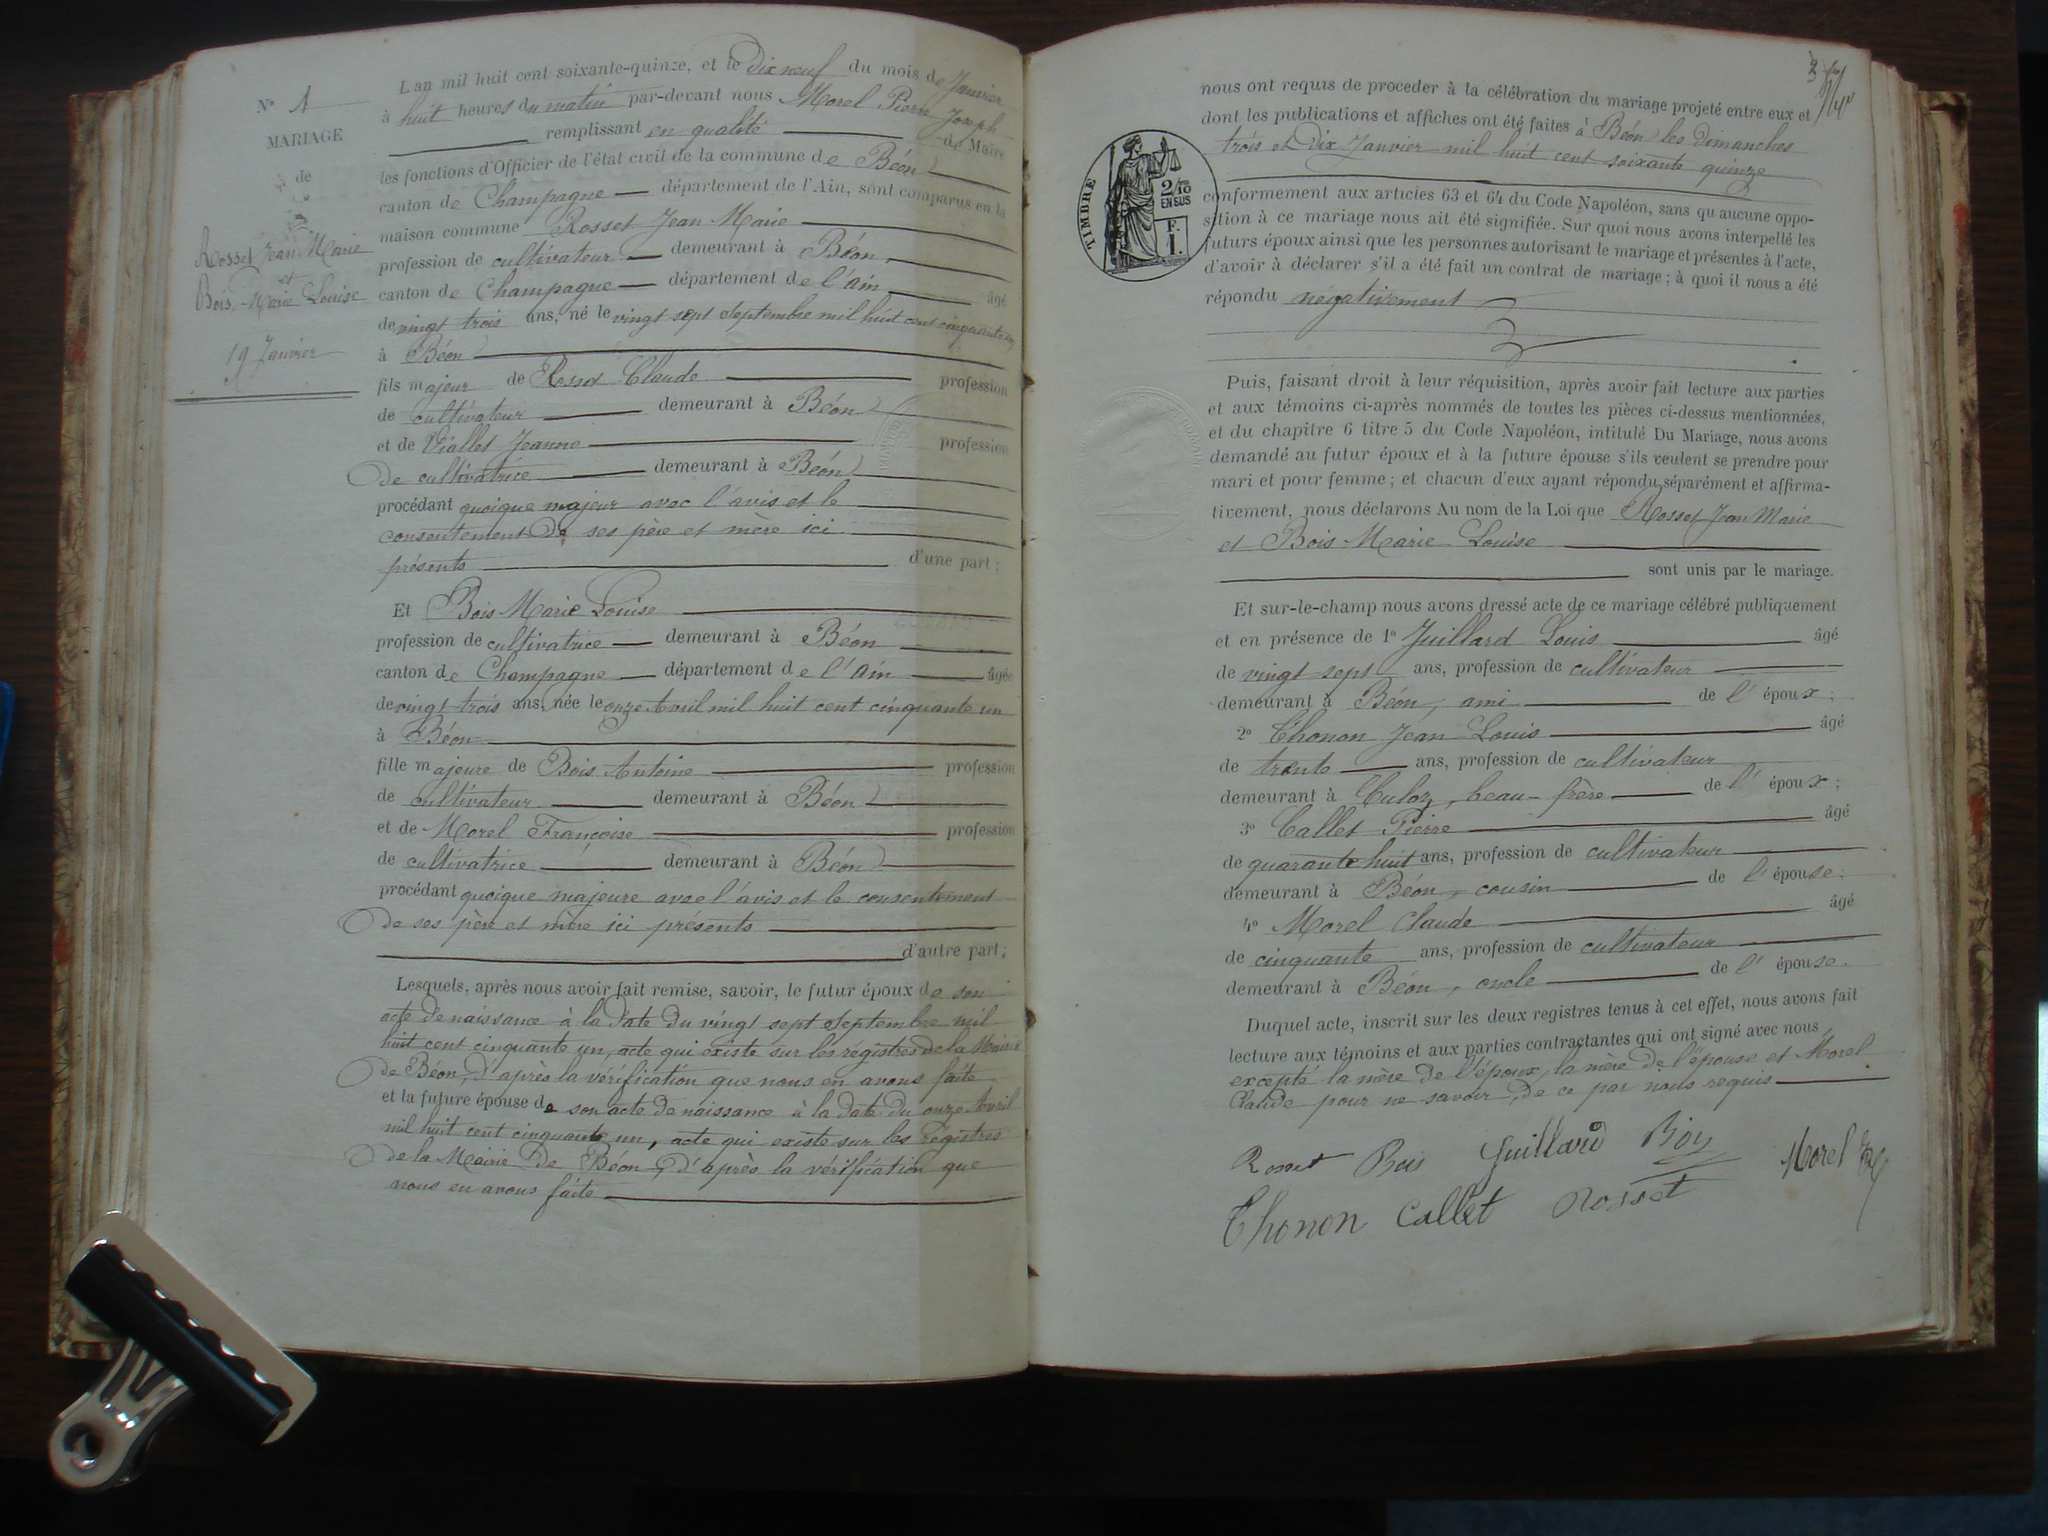 N° 1
MARIAGE
de
Rosset Jean Marie
et
Bois Marie Louise
19 Janvier
L'an mil huit cent soixante-quinze, et le dix neuf du mois de Janvier
à huit heures du matin par-devant nous Morel Pierre Joseph
remplissant en qualité de Maire
les fonctions d'Officier de l'état civil de la commune de Béon
canton de Champagne département de l'Ain, sont comparus en la
maison commune Rosset Jean Marie
profession de cultivateur demeurant à Béon,
canton de Champagne département de l'Ain âgé
de vingt trois ans, né le vingt sept Septembre mil huit cent cinquante un
à Béon
fils majeur de Rosset Claude profession
de cultivateur demeurant à Béon
et de Viallet Jeanne profession
de cultivatrice demeurant à Béon
procédant quoique majeur avec l'avis et le
consentement de ses père et mère ici
présents d'une part;
Et Bois Marie Louise
profession de cultivatrice demeurant à Béon
canton de Champagne département de l'Ain âgée
de vingt trois ans, née le onze Avril mil huit cent cinquante un
à Béon
fille majeure de Bois Antoine profession
de cultivateur demeurant à Béon
et de Morel Françoise profession
de cultivatrice demeurant à Béon
procédant quoique majeure avec l'avis et le consentement
de ses père et mère ici présents
d'autre part;
Lesquels, après nous avoir fait remise, savoir, le futur époux de son
acte de naissance à la date du vingt sept Septembre mil
huit cent cinquante un, acte qui existe sur les régistres de la Mairie
de Béon, d'après la vérification que nous en avons faite
et la future épouse de son acte de naissance à la date du onze Avril
mil huit cent cinquante un, acte qui existe sur les régistres
de la Mairie de Béon, d'après la vérification que
nous en avons faite
2
nous ont requis de proceder à la célébration du mariage projeté entre eux et
dont les publications et affiches ont été faites à Béon les dimanches
trois et dix Janvier mil huit cent soixante quinze
TIMBRE
2/10
EN SUS
F.
1.
conformement aux articles 63 et 64 du Code Napoléon, sans qu'aucune oppo-
sition à ce mariage nous ait été signifiée. Sur quoi nous avons interpellé les
futurs époux ainsi que les personnes autorisant le mariage et présentes à l'acte,
d'avoir à déclarer s'il a été fait un contrat de mariage; à quoi il nous a été
répondu négativement
Puis, faisant droit à leur réquisition, après avoir fait lecture aux parties
et aux témoins ci-après nommés de toutes les pièces ci-dessus mentionnées,
et du chapitre 6 titre 5 du Code Napoléon, intitulé Du Mariage, nous avons
demandé au futur époux et à la future épouse s'ils veulent se prendre pour
mari et pour femme; et chacun d'eux ayant répondu séparément et affirma-
tivement, nous déclarons Au nom de la Loi que Rosset Jean Marie
et Bois Marie Louise
sont unis par le mariage.
Et sur-le-champ nous avons dressé acte de ce mariage célébré publiquement
et en présence de 1° Juillard Louis âgé
de vingt sept ans, profession de cultivateur
demeurant à Béon, ami de l'époux;
2° Thonon Jean Louis âgé
de trente ans, profession de cultivateur
demeurant à Culoz, beau-frère de l'époux;
3° Callet Pierre âgé
de quarante huit ans, profession de cultivateur
demeurant à Béon, cousin de l'épouse;
4° Morel Claude âgé
de cinquante ans, profession de cultivateur
demeurant à Béon, oncle de l'épouse.
Duquel acte, inscrit sur les deux registres tenus à cet effet, nous avons fait
lecture aux témoins et aux parties contractantes qui ont signé avec nous
excepté la mère de l'époux, la mère de l'épouse et Morel
Claude pour ne savoir, de ce par nous requis
Rosset Bois Juillard Bois Morel
Thonon Callet Rosset